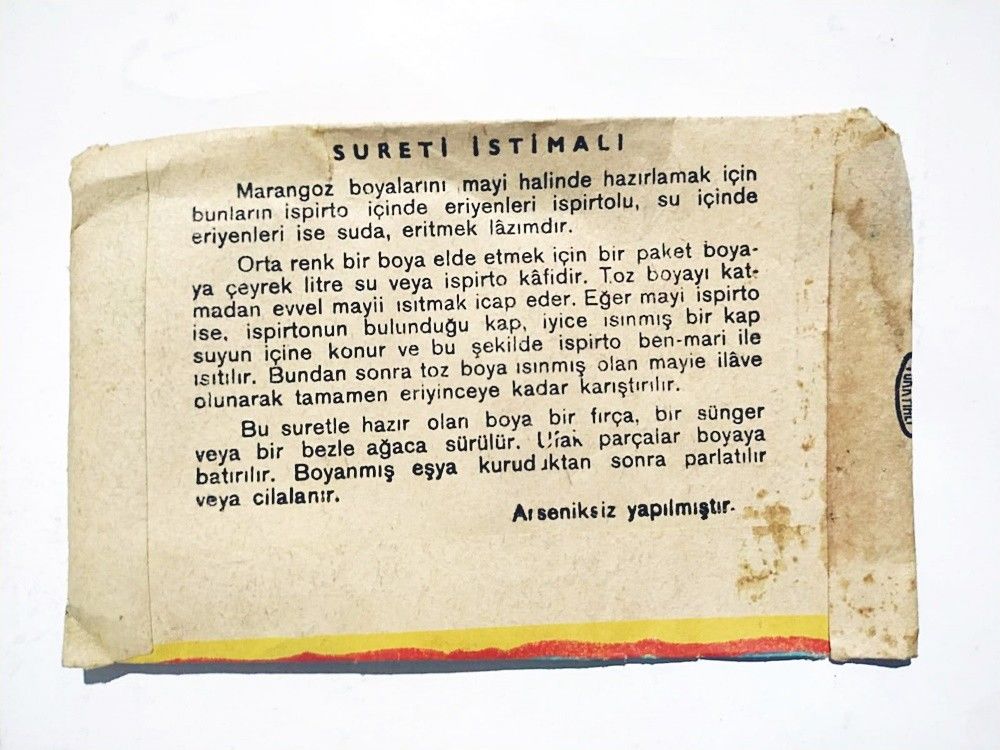 SURETİ İSTİMALİ
Marangoz boyalarını mayi halinde hazırlamak için
bunların ispirto içinde eriyenleri ispirtolu, su içinde
eriyenleri ise suda, eritmek lâzımdır.
Orta renk bir boya elde etmek için bir paket boya-
ya çeyrek litre su veya ispirto kâfidir. Toz boyayı kat-
madan evvel mayii ısıtmak icap eder. Eğer mayi ispirto
ise, ispirtonun bulunduğu kap, iyice ısınmış bir kap
suyun içine konur ve bu şekilde ispirto ben-mari ile
ısıtılır. Bundan sonra toz boya ısınmış olan mayie ilâve
olunarak tamamen eriyinceye kadar karıştırılır.
Bu suretle hazır olan boya bir fırça, bir sünger
veya bir bezle ağaca sürülür. Ufak parçalar boyaya
batırılır. Boyanmış eşya kuruduktan sonra parlatılır
veya cilalanır.
Arseniksiz yapılmıştır.